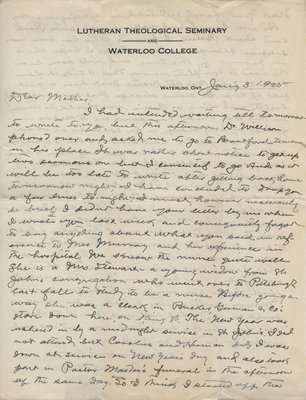 LUTHERAN THEOLOGICAL SEMINARY
AND
WATERLOO COLLEGE
WATERLOO, ONT. Jan'y 3
Dear Mother,
I had intended waiting till tomorrow
to write to you, but this afternoon Dr. Willison
phoned over and asked me to go to Brantford
in his place. It was rather short notice to get up
two sermons on but I consented to go and as it
will be too late to write after getting back here
tomorrow night I have concluded to drop you
a few lines tonight. I must however
I did not have your letter by me when
I wrote you last week and consequently forgot
to say anything about what you said in ref
erence to Mrs Murray and her experience in
the hospital. We know the nurse quite well.
She is a Mrs. Stewart - a young widow from St
Johns congregation who went over to Pittsburgh
last fall to study to be a nurse. Before going a
way she was a clerk in
store down here on King St. The New Year was
ushered in by a midnight service in St John's. I did
not attend, but Caroline and Herman did. I was
down at service on New Years Day and also took
part in Pastor funeral in the afternoon
of the same day. So I think I started off the